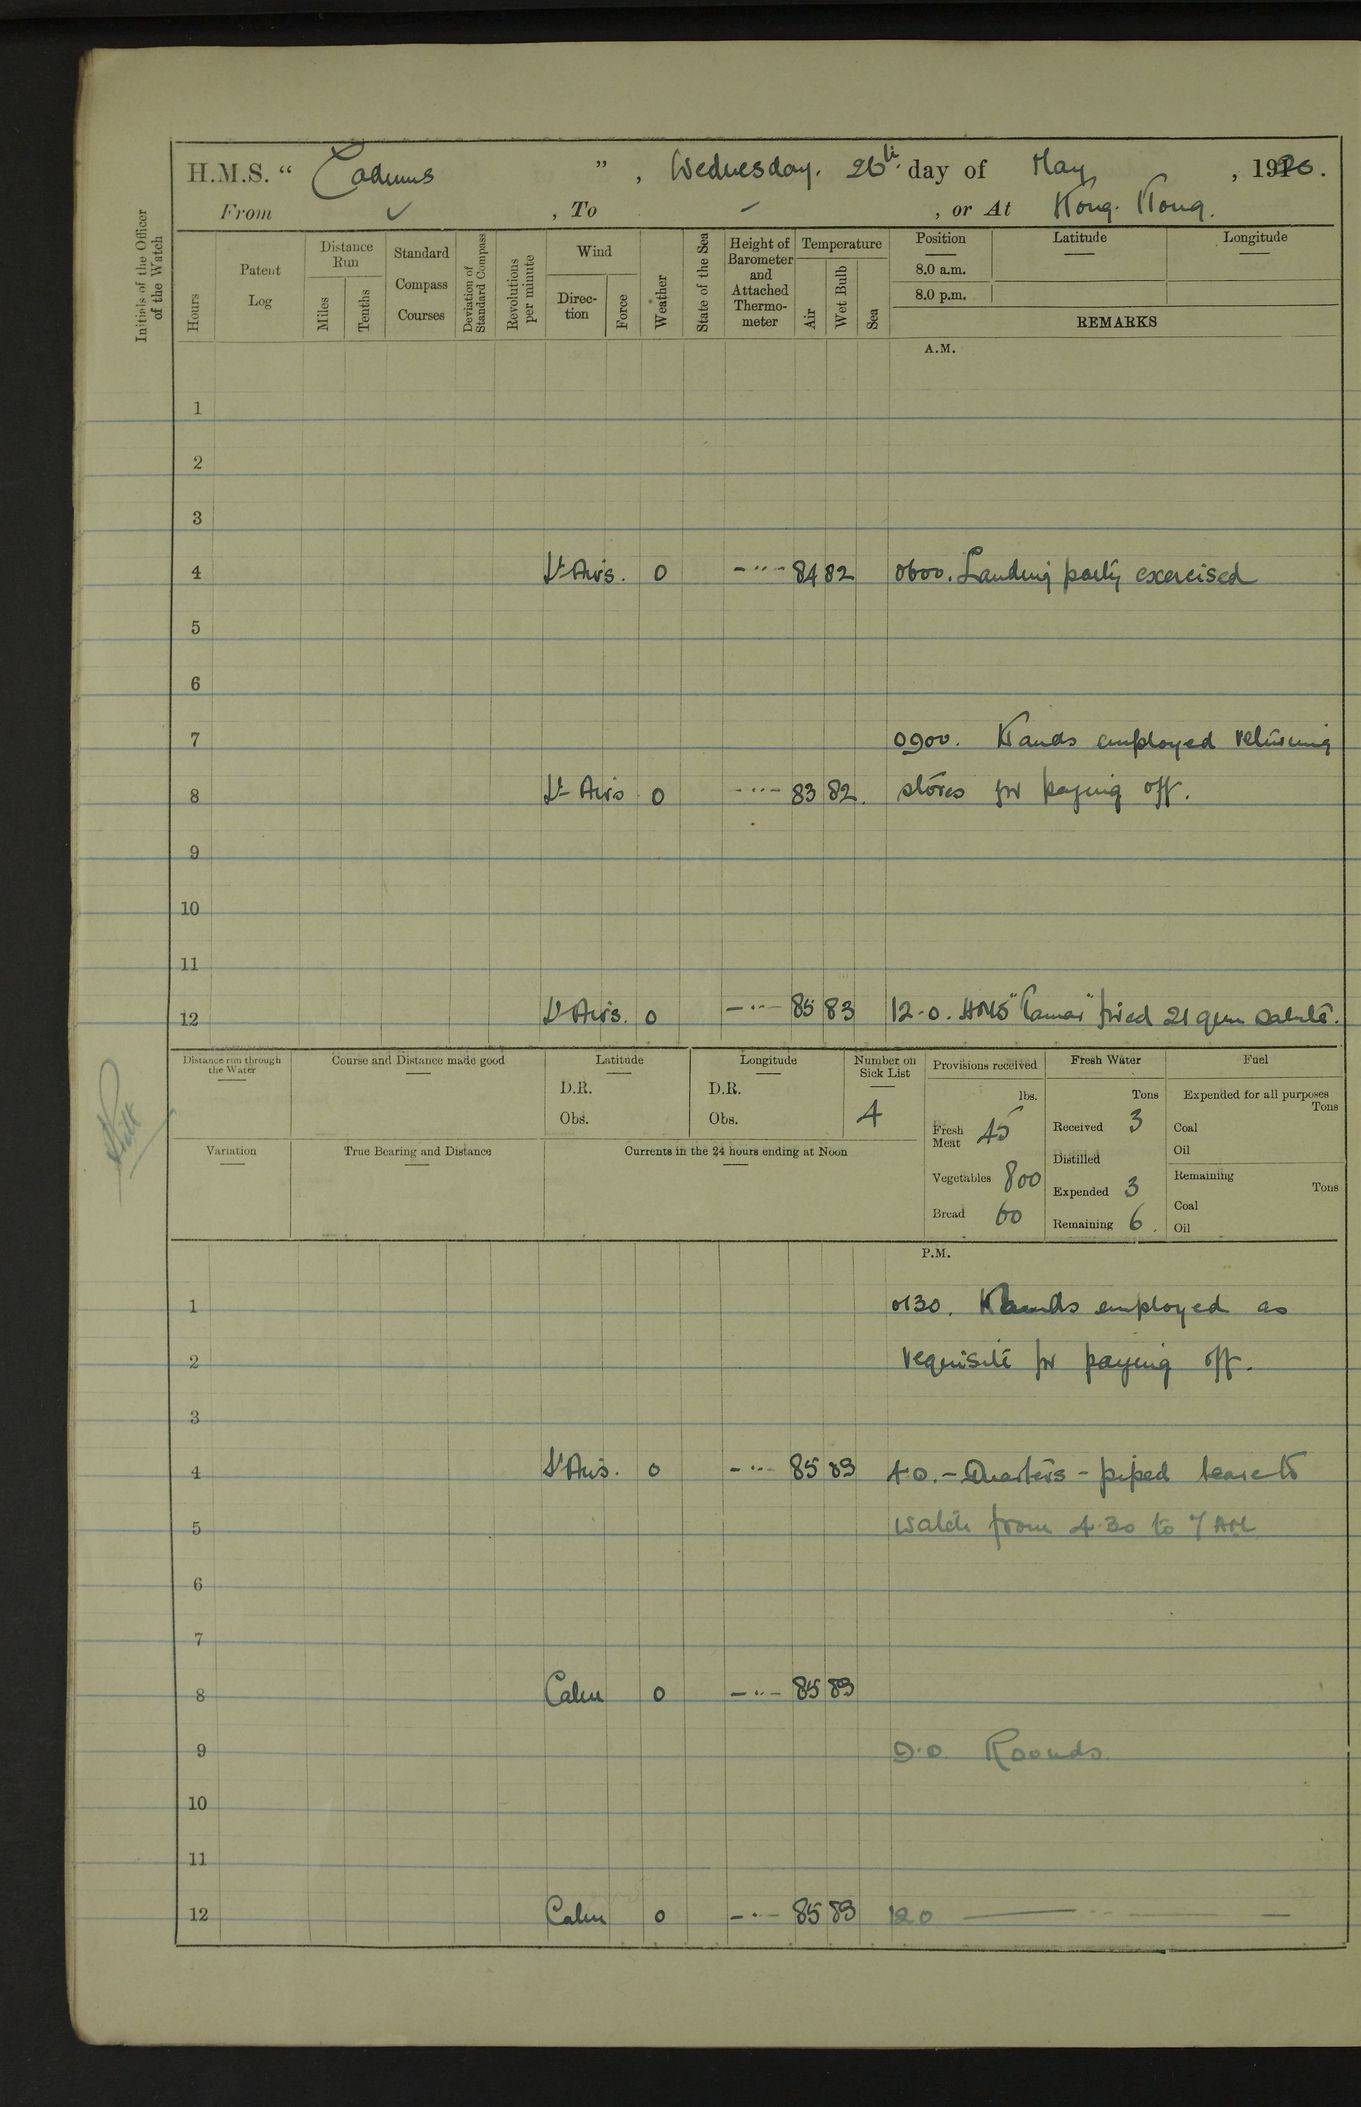 H.M.S. “ Cadmus ”, Wednesday. 26th day of May, 1920.
From ✓, To –, or At Hong Kong.
Initials of the Officer of the Watch
Hours
Patent Log
Distance Run
Miles
Tenths
Standard Compass Courses
Deviation of Standard Compass
Revolutions per minute
Wind
Direction
Force
Weather
State of the Sea
Height of Barometer and Attached Thermometer
Temperature
Air
Wet Bulb
Sea
Position Latitude Longitude
8.0 a.m.
8.0 p.m.
REMARKS
A.M.
1
2
3
4 Lt Airs. 0 -"- 84 82 0600. Landing party exercised
5
6
7 0900. Hands employed returning
8 Lt Airs 0 -"- 83 82. stores for paying off.
9
10
11
12 Lt Airs. 0 -"- 85 83 12.0. HMS "Tamar" fired 21 gun salute.
Distance run through the Water
Course and Distance made good
Latitude
D.R.
Obs.
Longitude
D.R.
Obs.
Number on Sick List
4
Provisions received
lbs.
Fresh Meat 45
Vegetables 800
Bread 60
Fresh Water
Tons
Received 3
Distilled
Expended 3
Remaining 6.
Fuel
Expended for all purposes
Tons
Coal
Oil
Remaining
Tons
Coal
Oil
Variation
True Bearing and Distance
Currents in the 24 hours ending at Noon
P.M.
1 0130. Hands employed as
2 requisite for paying off.
3
4 Lt Airs. 0 -"- 85 83 4.0. – Quarters – piped leave to
5 watch from 4.30 to 7 AM
6
7
8 Calm 0 -"- 85 83
9 9.0 Rounds
10
11
12 Calm 0 -"- 85 83 12.0